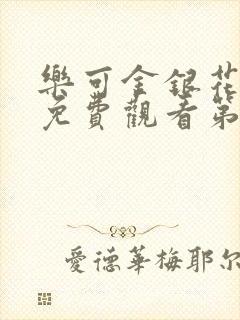 樂可金銀花
免費觀看第
愛德華梅耶尔